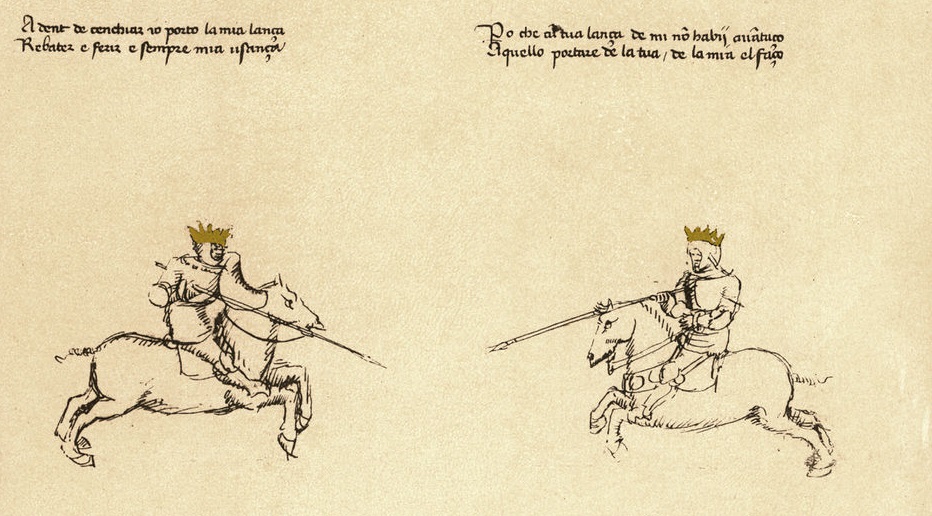 A dent de cenchiar io porto la mia lança
Rebater e ferir e sempre mia usança
Po che cū tua lança de mi nō habij auātaço
Aquello portare de la tua / de la mia el faço